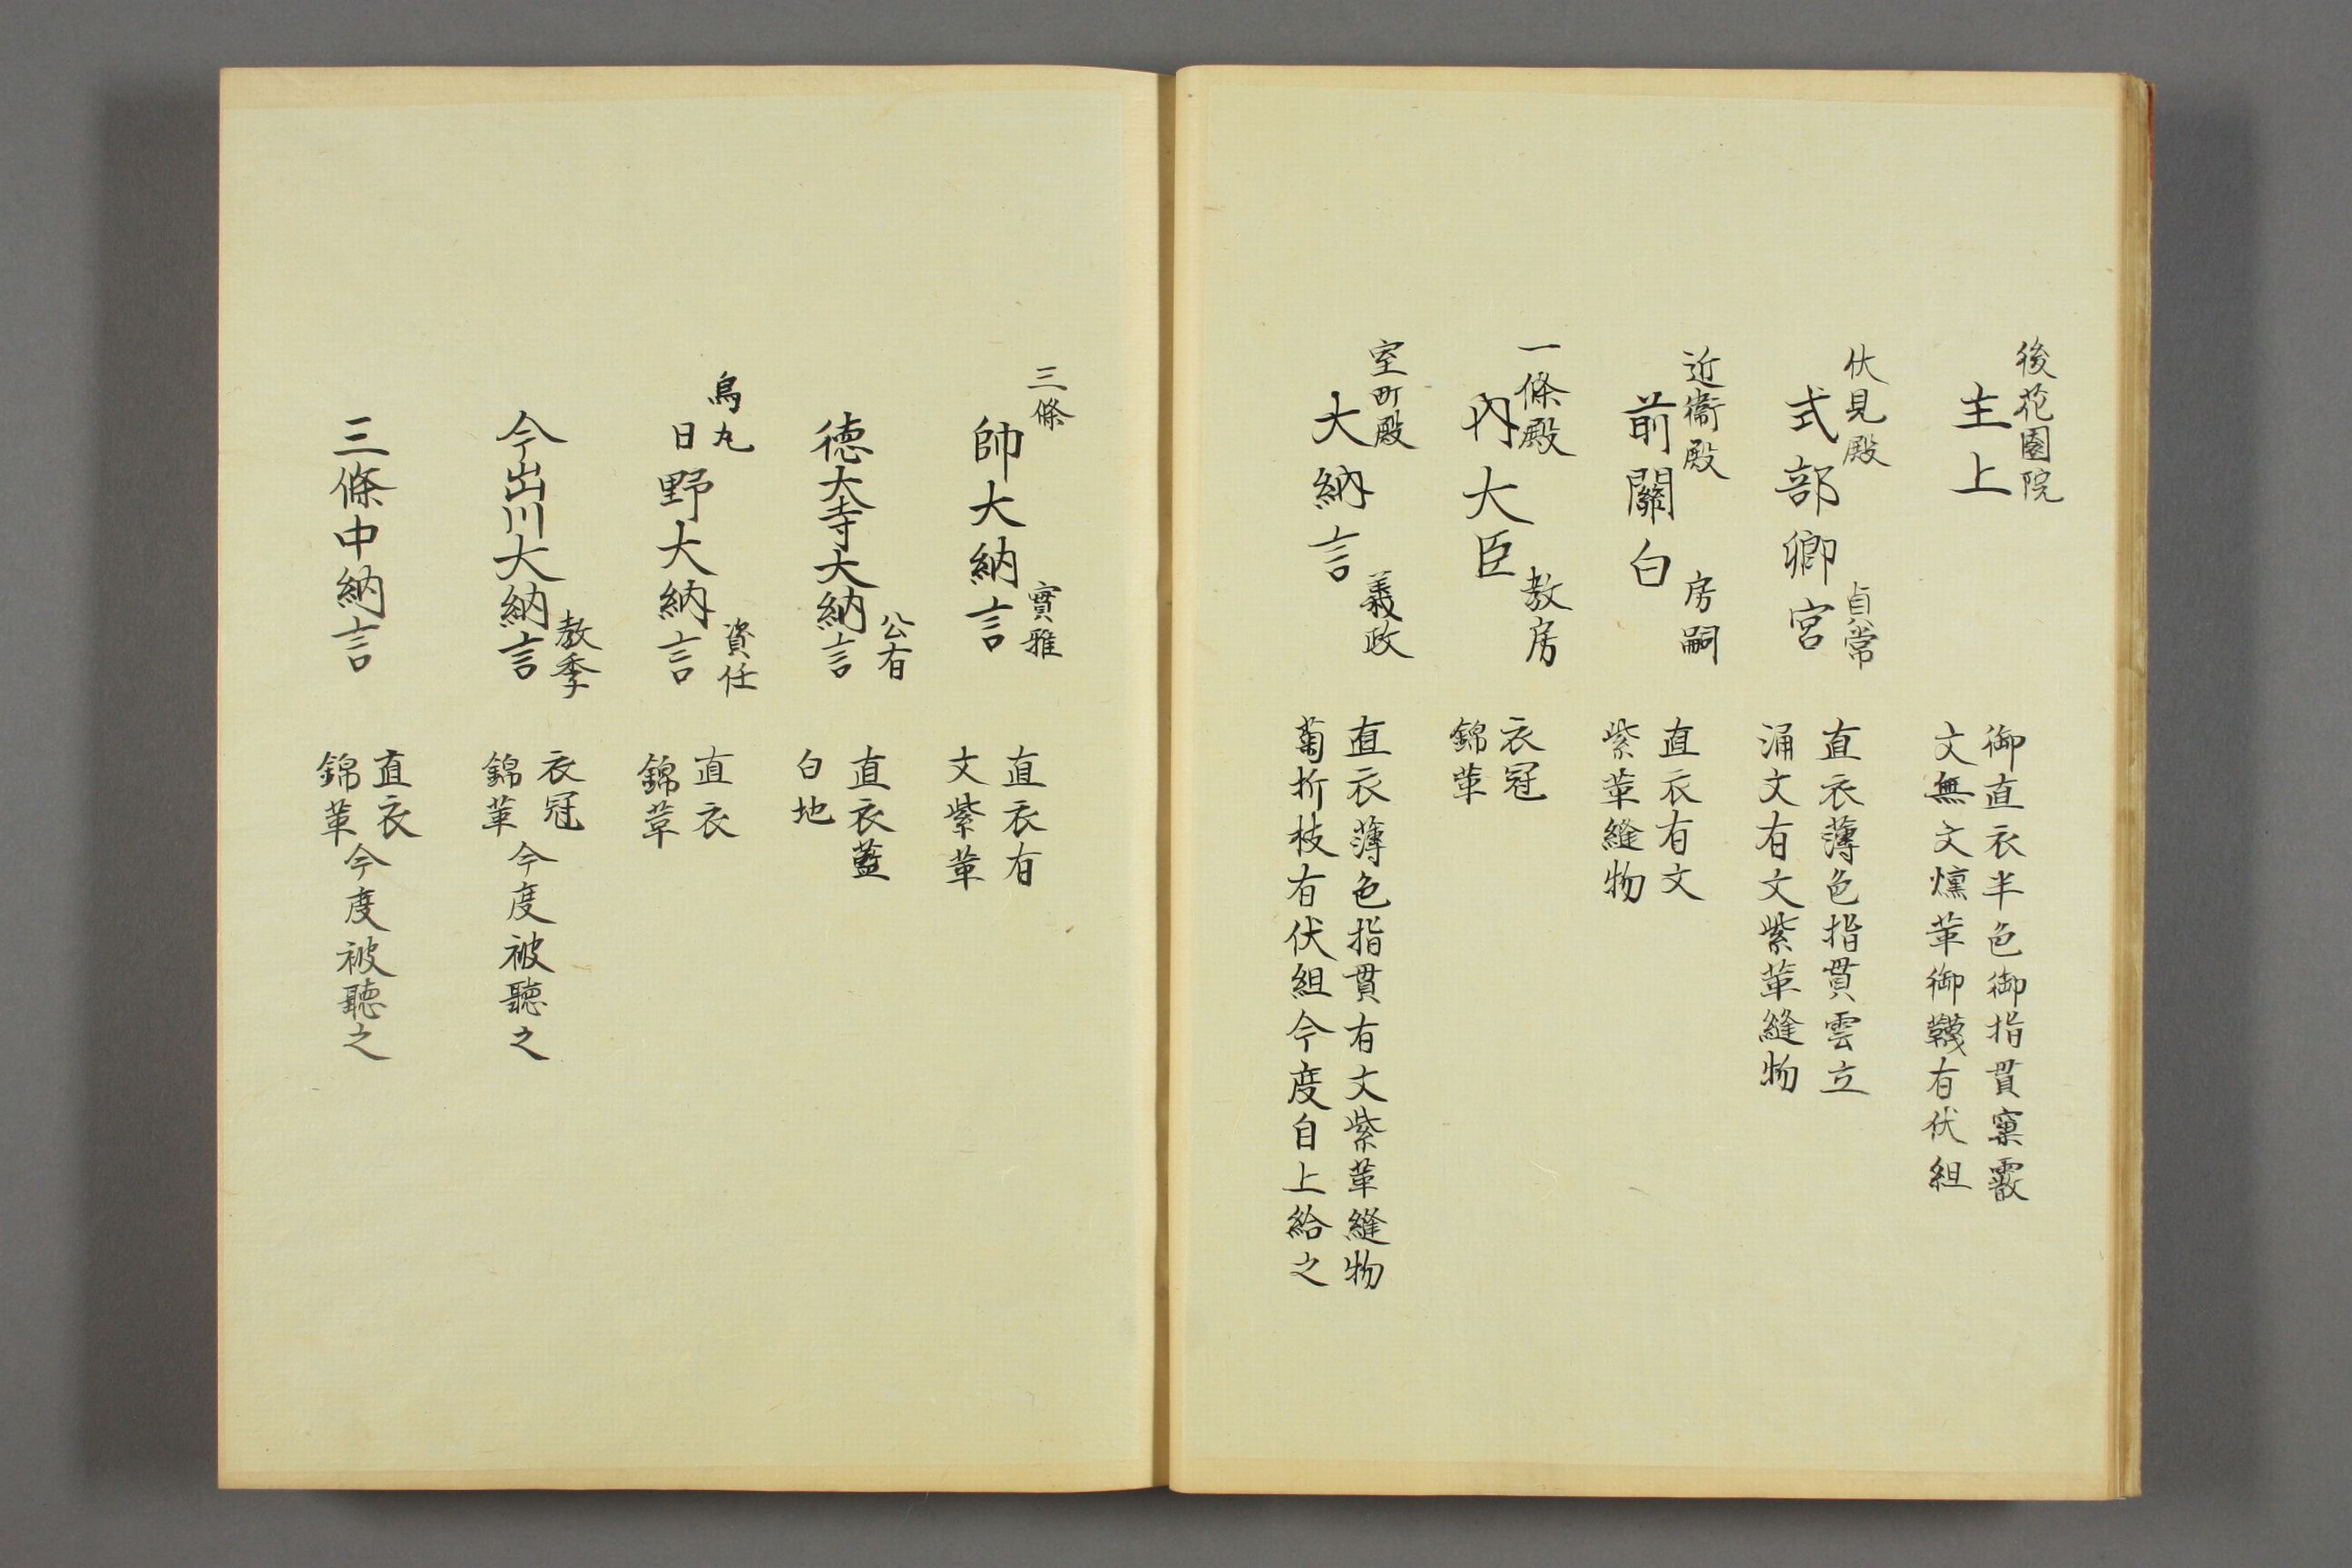 後花園院
主上
御直衣半色御指貫窠霰
文無文燻革御韈有伏組
伏見殿
式部卿宮
貞常
直衣薄色指貫雲立
涌文有文紫革縫物
近衞殿
前關白
房嗣
直衣有文
紫革縫物
一條殿
內大臣
教房
衣冠
錦革
室町殿
大納言
義政
直衣薄色指貫有文紫革縫物
菊折枝有伏組今度自上給之
三條
帥大納言
實雅
直衣有
文紫革
徳大寺大納言
公有
直衣藍
白地
烏丸
日野大納言
資任
直衣
錦革
今出川大納言
教季
衣冠
錦革
今度被聽之
三條中納言
直衣
錦革
今度被聽之